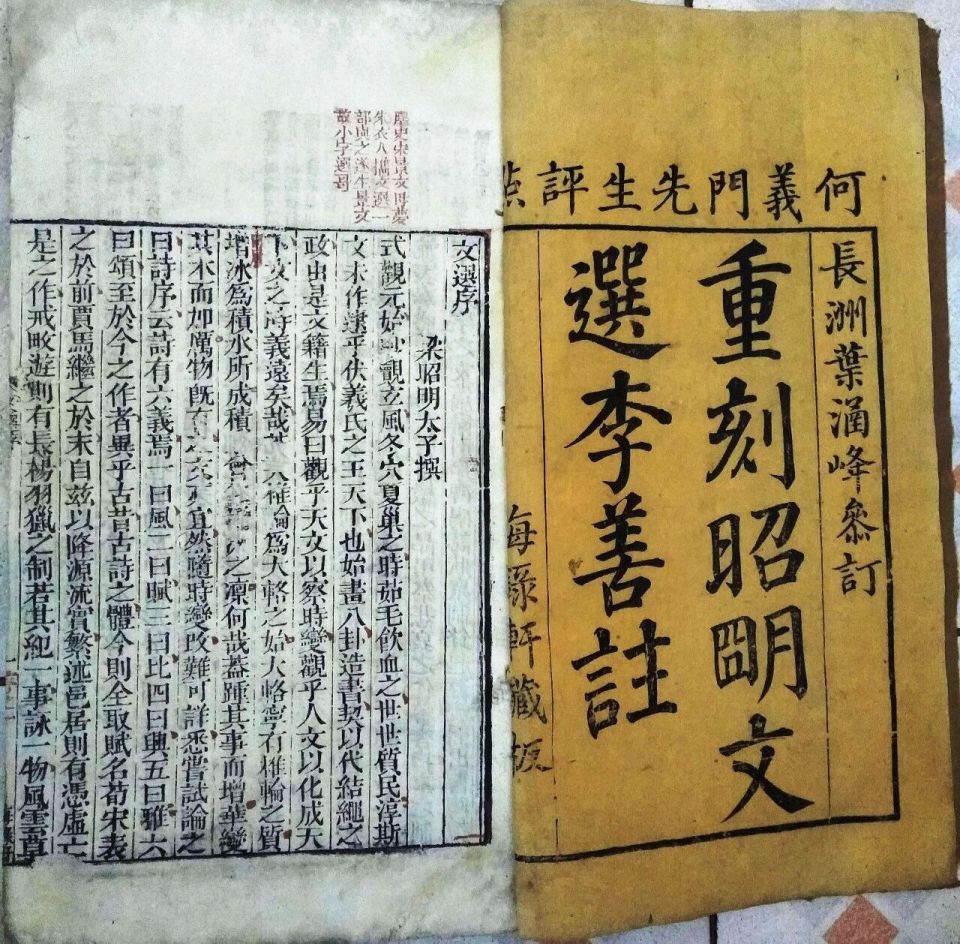 何義門先生評点
長洲葉涵峰叅訂
重刻昭明文
選李善註
海録軒藏板
塵史宋景文母夢
朱衣人攜文選一
部與之遂生景文
故小字選哥
文選序
梁昭明太子撰
式觀元始眇覿玄風冬穴夏巢之時茹毛飲血之世世質民淳斯
文未作逮乎伏義氏之王天下也始畫八卦造書契以代結繩之
政由是文籍生焉易曰觀乎天文以察時變觀乎人文以化成天
下文之時義遠矣哉椎輪爲大輅之始大輅寧有椎輪之質
增冰爲積水所成積之凜何哉蓋踵其事而增華變
其本而加厲物既有之文亦宜然隨時變改難可詳悉嘗試論之
曰詩序云詩有六義焉一曰風二曰賦三曰比四曰興五曰雅六
曰頌至於今之作者異乎古昔古詩之體今則全取賦名荀宋表
之於前賈馬繼之於末自兹以降源流實繁述邑居則有憑虛亡
是之作戒畋遊則有長楊羽獵之制若其紀一事詠一物風雲草